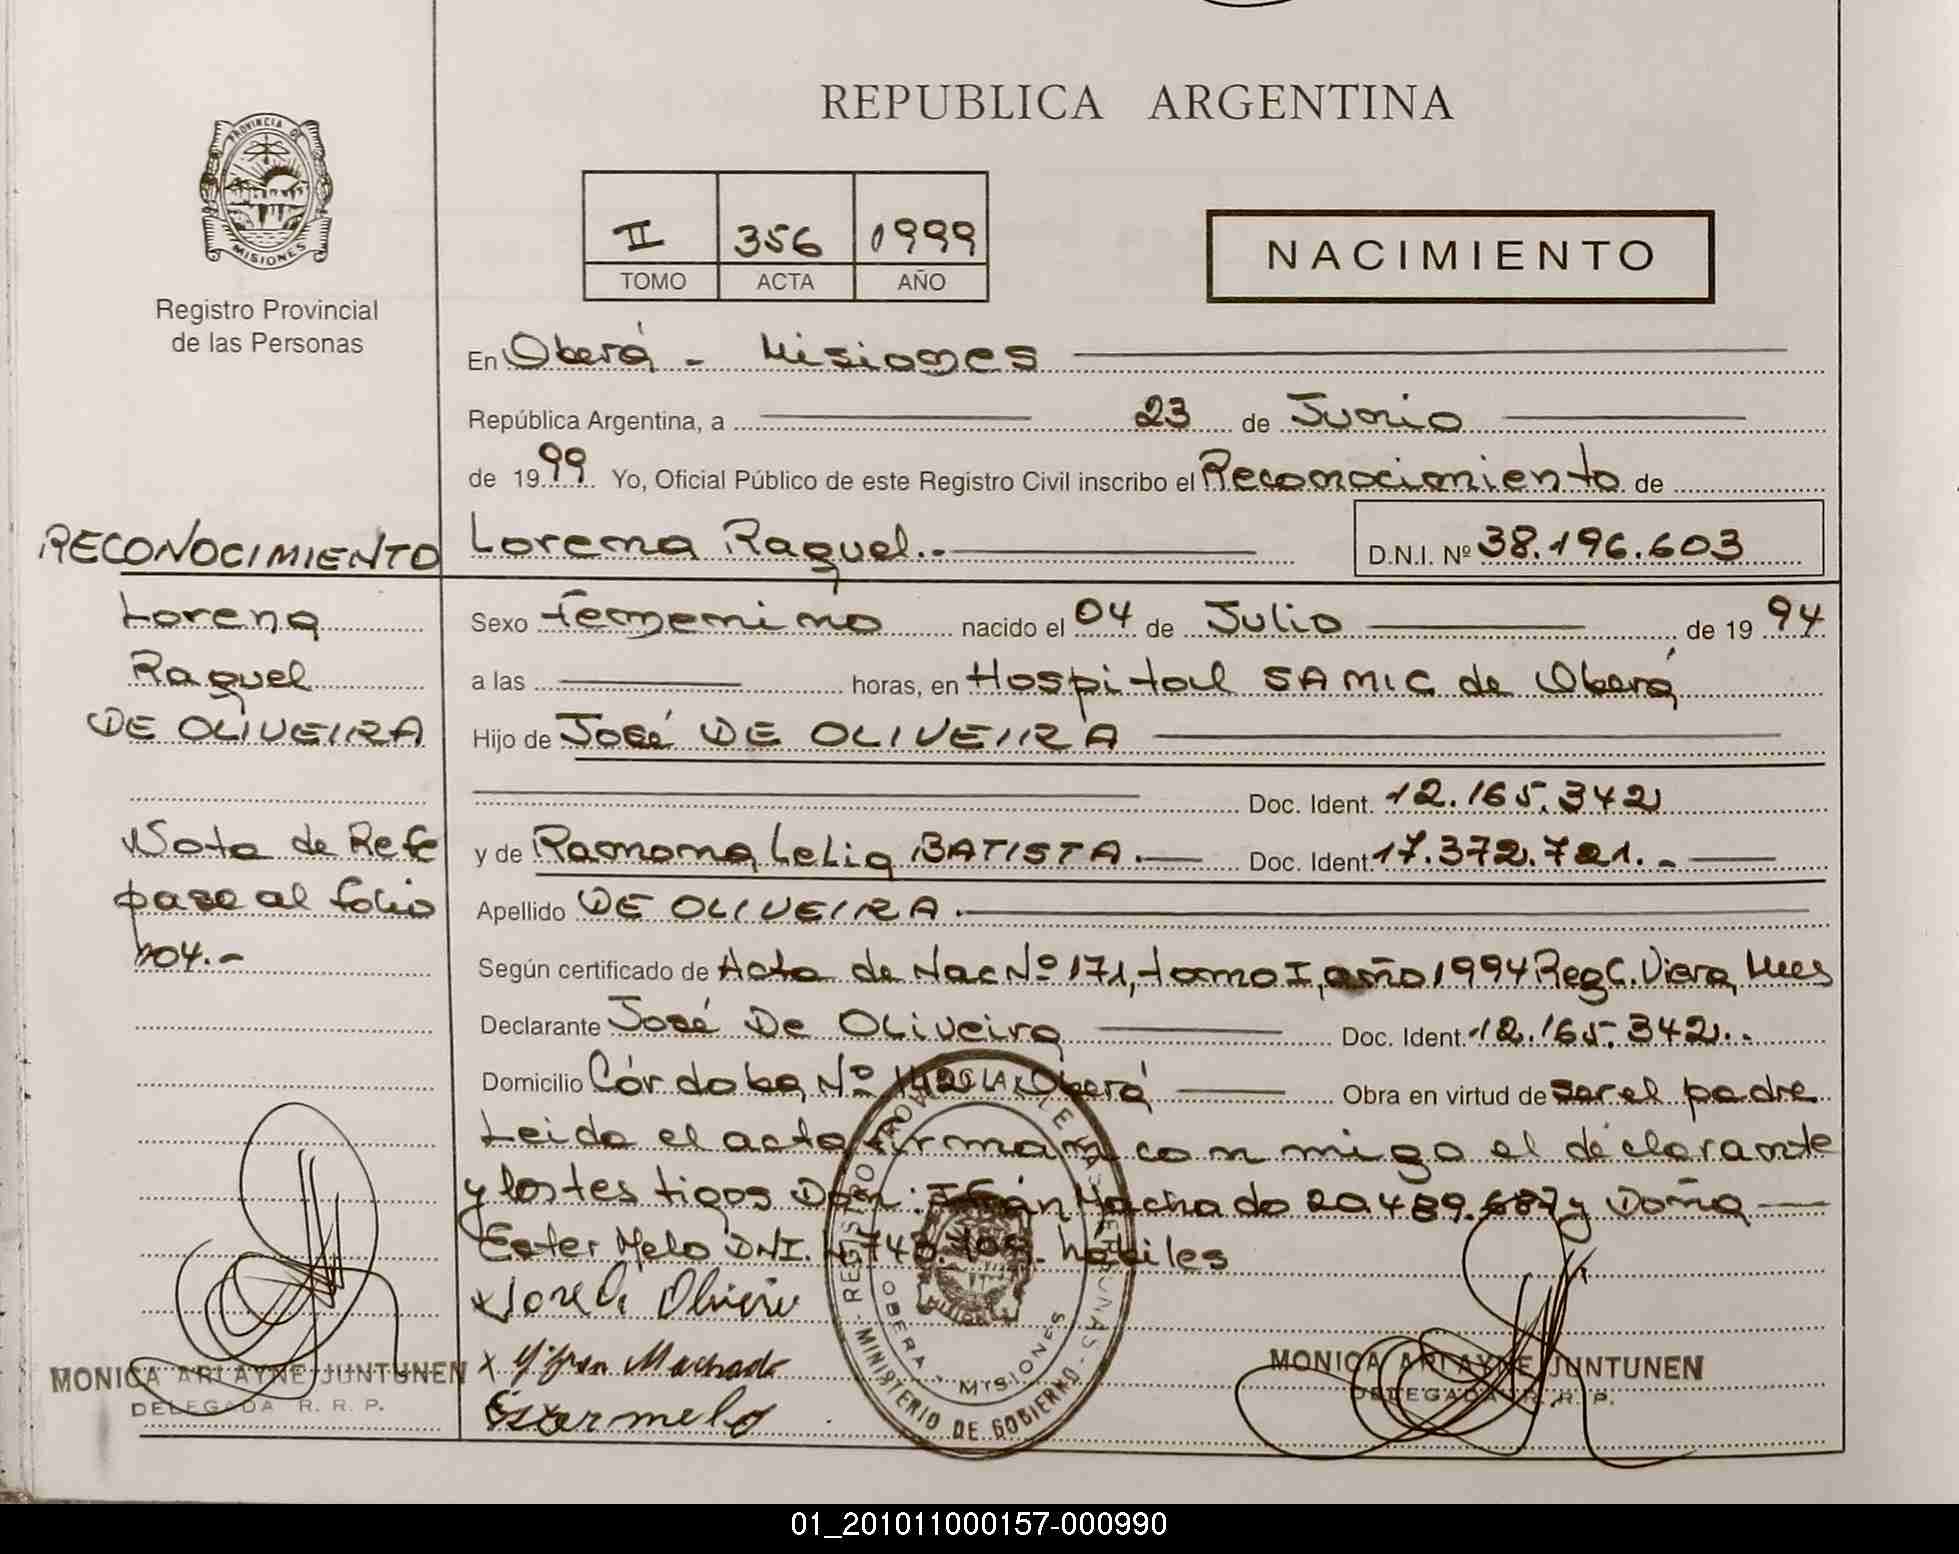 REPUBLICA ARGENTINA
PROVINCIA DE
MISIONES
Registro Provincial
de las Personas
II 356 1999
TOMO ACTA AÑO
NACIMIENTO
En Oberá - Misiones
República Argentina, a 23 de Junio
de 1999 Yo, Oficial Público de este Registro Civil inscribo el Reconocimiento de
Lorena Raquel.- D.N.I. Nº 38.196.603
Sexo femenino nacido el 04 de Julio de 1994
a las horas, en Hospital SAMIC de Oberá
Hijo de José DE OLIVEIRA
Doc. Ident. 12.165.342
y de Ramona Lelia BATISTA.- Doc. Ident. 17.372.721.-
Apellido DE OLIVEIRA.
Según certificado de Acta de Nac Nº 171, tomo I, año 1994 Reg C. Viera, Mnes
Declarante José De Oliveira Doc. Ident. 12.165.342.-
Domicilio Córdoba Nº Oberá Obra en virtud de ser el padre
Leido el acta firman conmigo el declarante
y los testigos Don: Machado 20.489.687 y Doña
Ester Melo DNI. hábiles
RECONOCIMIENTO
Lorena
Raquel
DE OLIVEIRA
Nota de Refe
pase al folio
104.-
x Jose de Oliveira
x Machado
Ester melo
MONICA ARLAYNE JUNTUNEN
DELEGADA R. R. P.
MONICA ARLAYNE JUNTUNEN
DELEGADA R. R. P.
REGISTRO PROVINCIAL DE LAS PERSONAS
MINISTERIO DE GOBIERNO
OBERA - MISIONES
01_201011000157-000990